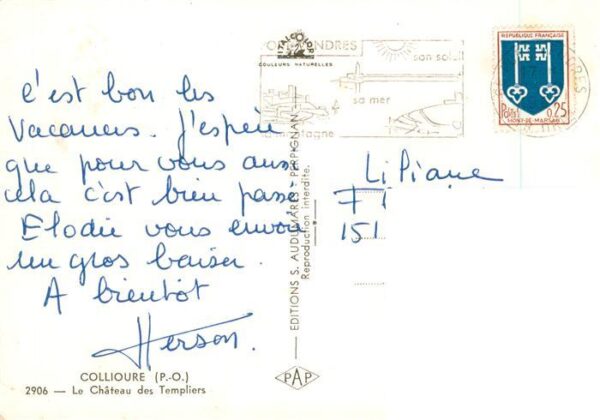 c'est bon les
vacances. J'espère
que pour vous aussi
cela c'est bien passé.
Elodie vous envoie
un gros baiser.
A bientôt
Herson.
COLLIOURE (P.-O.)
2906 — Le Château des Templiers
ITALCOLOR
COULEURS NATURELLES
EDITIONS S. AUDUMARÈS - PERPIGNAN
Reproduction interdite.
PAP
son soleil
sa mer
REPUBLIQUE FRANÇAISE
Postes 0,25
MONT-DE-MARSAN
Liliane
71
151